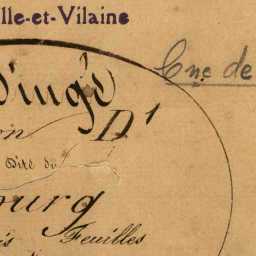 lle-et-Vilaine
Cne de
Vingt
on D1
Dite du
ourg
is Feuilles